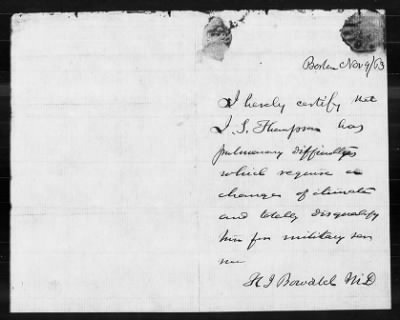 Boston Nov 9/63
I hereby certify that
J. S. Thompson has
pulmonary difficulties
which require a
change of climate
and totally disqualify
him for military ser
vice
H I Bowditch M.D